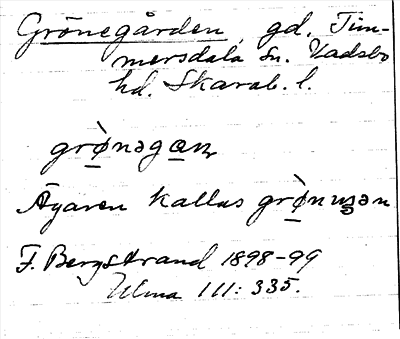 Grönegården, gd, Tim-
mersdala sn. Vadsbo
hd. Skarab. l.
grø̀nəgaɳ
Ägaren kallas grø̀n
F. Bergstrand 1898-99
Ulma 111: 335.